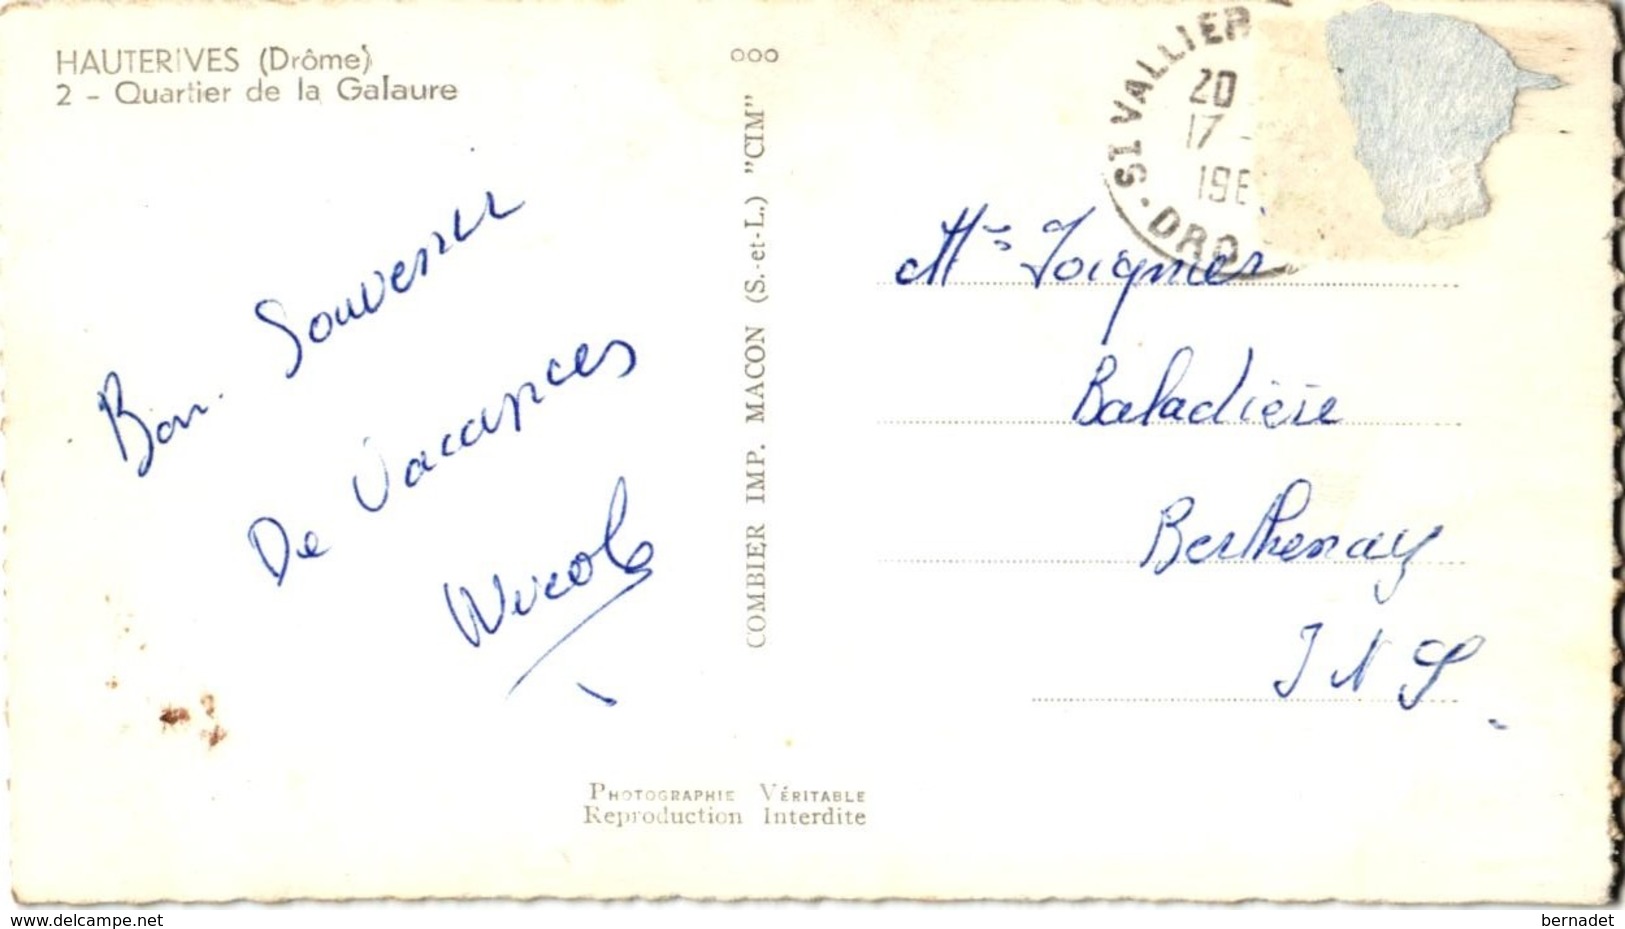 HAUTERIVES (Drôme)
2 - Quartier de la Galaure
Bon Souvenir
De Vacances
Nicole
COMBIER IMP. MACON (S.-et-L.) "CIM"
PHOTOGRAPHIE VÉRITABLE
Reproduction Interdite
ST VALLIER
20
17 -
196
DRO
Baladière
Berthenay
I N S
www.delcampe.net
bernadet